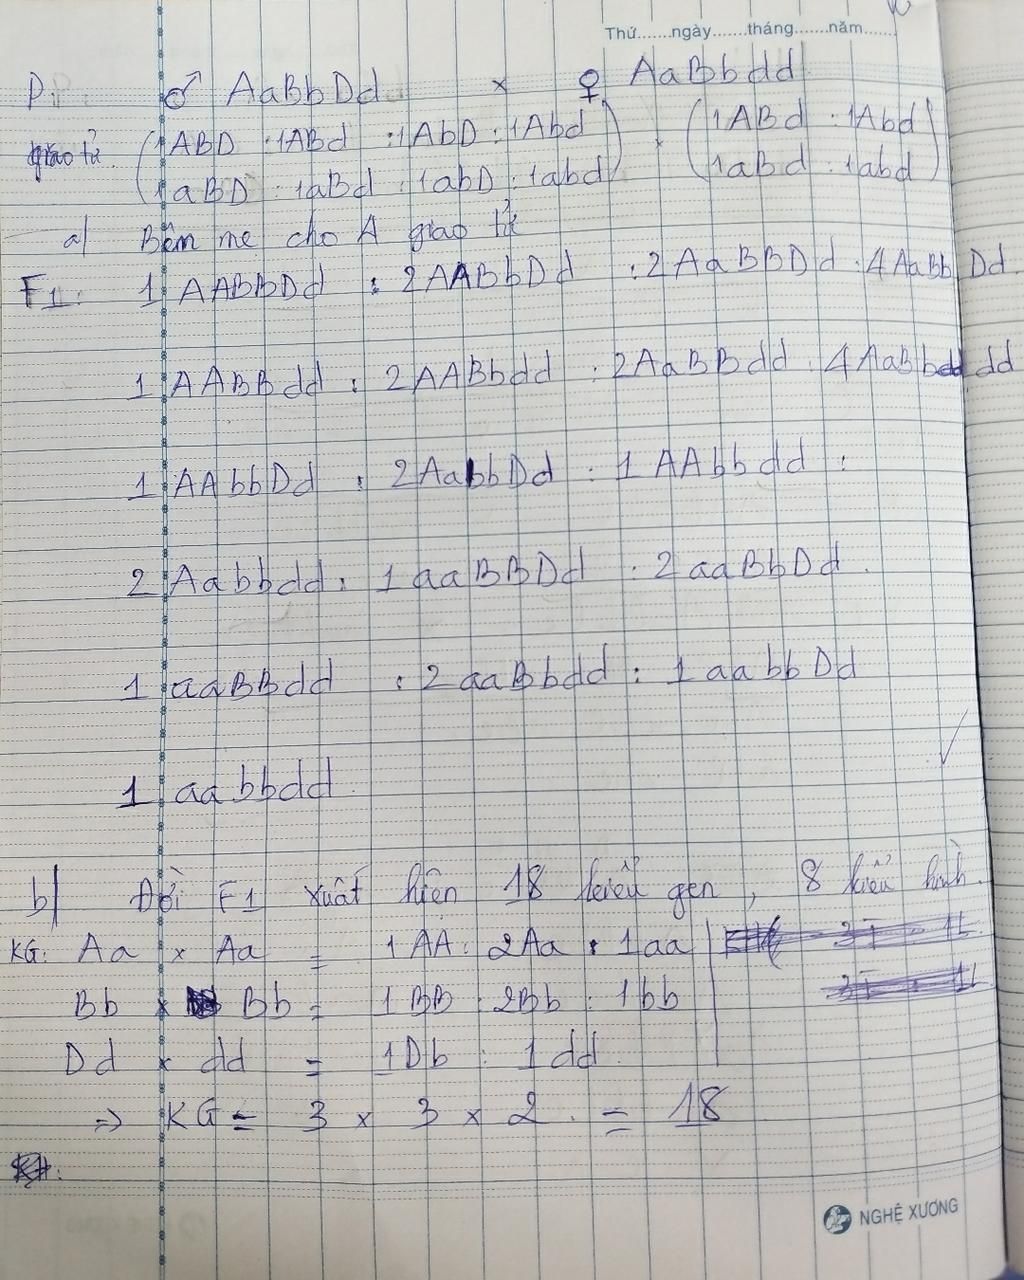 Thứ.......ngày.......tháng.......năm.......
P: ♂ AaBbDd × ♀ AaBbdd
giao tử. (1ABD : 1ABd : 1AbD : 1Abd) × (1ABd : 1Abd)
(1aBD : 1aBd : 1abD : 1abd) (1aBd : 1abd)
a) Bên mẹ cho 4 giao tử
F1: 1 AABBDd : 2AABbDd : 2AaBBDd : 4AaBbDd
1 AABBdd : 2AABbdd : 2AaBBdd : 4AaBbdd dd
1 AAbbDd : 2AabbDd : 1AAbbdd :
2 Aabbdd : 1aaBBDd : 2aaBbDd.
1 aaBBdd : 2aaBbdd : 1aabbDd
1 aabbdd
b) Đời F1 xuất hiện 18 kiểu gen, 8 kiểu hình.
KG: Aa × Aa = 1AA : 2Aa : 1aa
Bb × Bb = 1BB : 2Bb : 1bb
Dd × dd = 1Db : 1dd
=> KG = 3 × 3 × 2 = 18
NGHỆ XƯƠNG